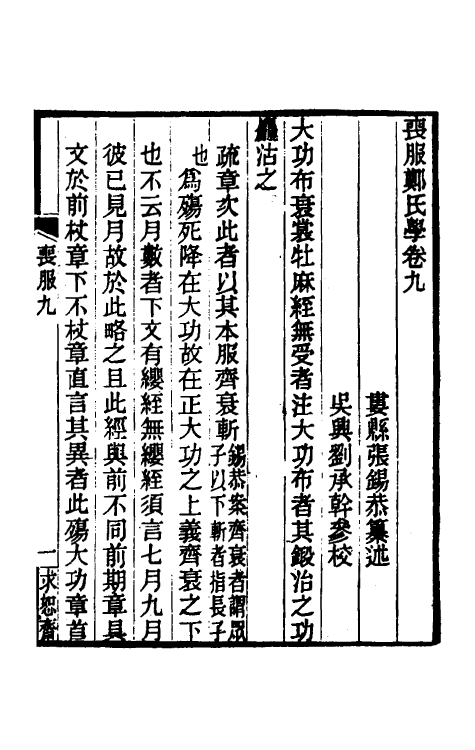 喪服鄭氏學卷九
婁縣張錫恭纂述
吳興劉承幹參校
大功布衰裳牡麻絰無受者注大功布者其鍛治之功
麤沽之
疏章次此者以其本服齊衰斬錫恭案齊衰者謂眾子以下斬者指長子
也為殤死降在大功故在正大功之上義齊衰之下
也不云月數者下文有纓絰無纓絰須言七月九月
彼已見月故於此略之且此經與前不同前期章具
文於前杖章下不杖章直言其異者此殤大功章首
喪服九
一
求恕齋